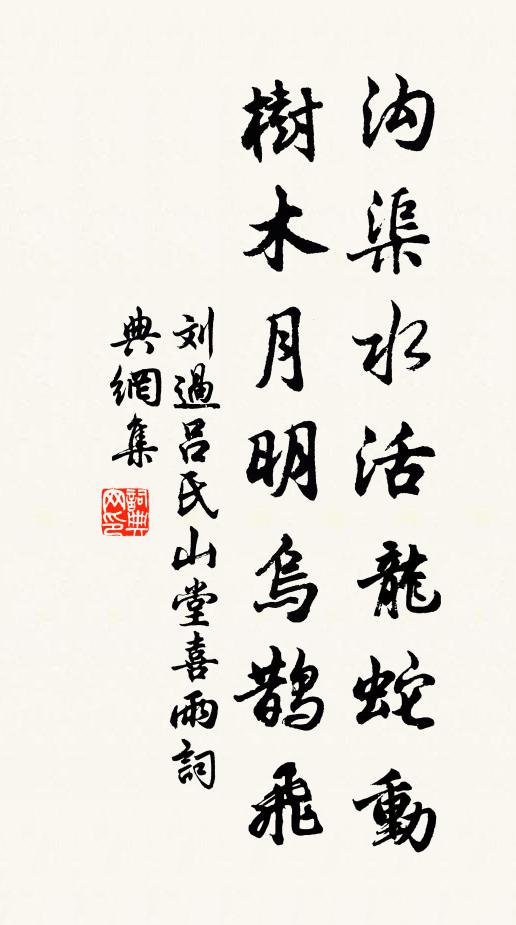 沟渠水活龍蛇動
樹木月明烏鵲飛
刘過吕氏山堂喜雨詞
典網集
詞典
网印